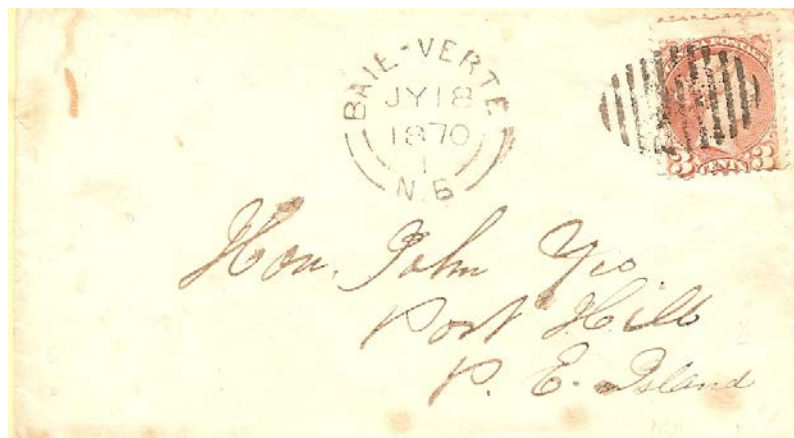 BAIE-VERTE
JY 18
1870
1
N.B
3 CENTS 3
Hon. John Yeo
Port Hill
P. E. Island